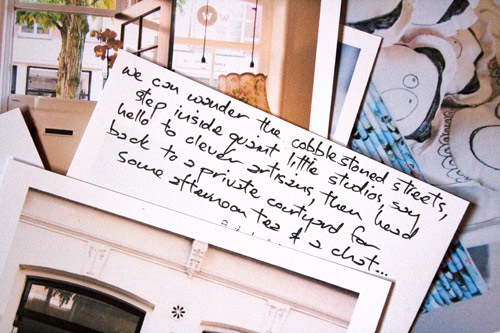 we can wander the cobblestoned streets,
step inside quaint little studios, say
hello to clever artisans, then head
back to a private courtyard for
some afternoon tea & a chat...